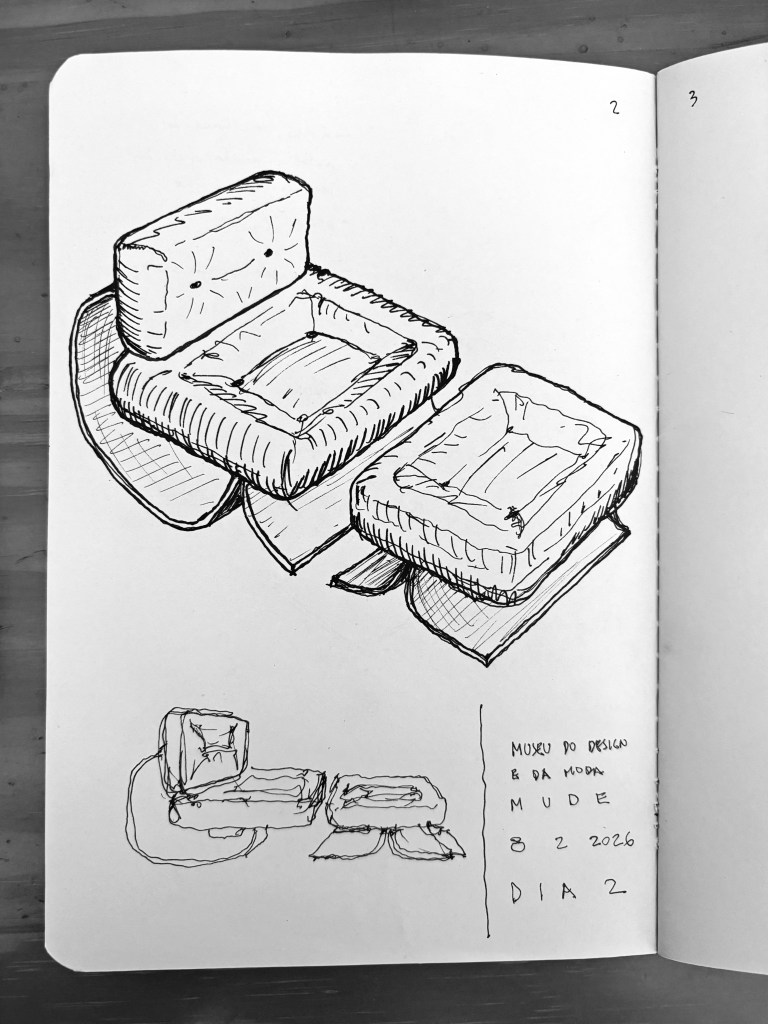 2
3
MUSEU DO DESIGN
E DA MODA
MUDE
8 2 2026
DIA 2